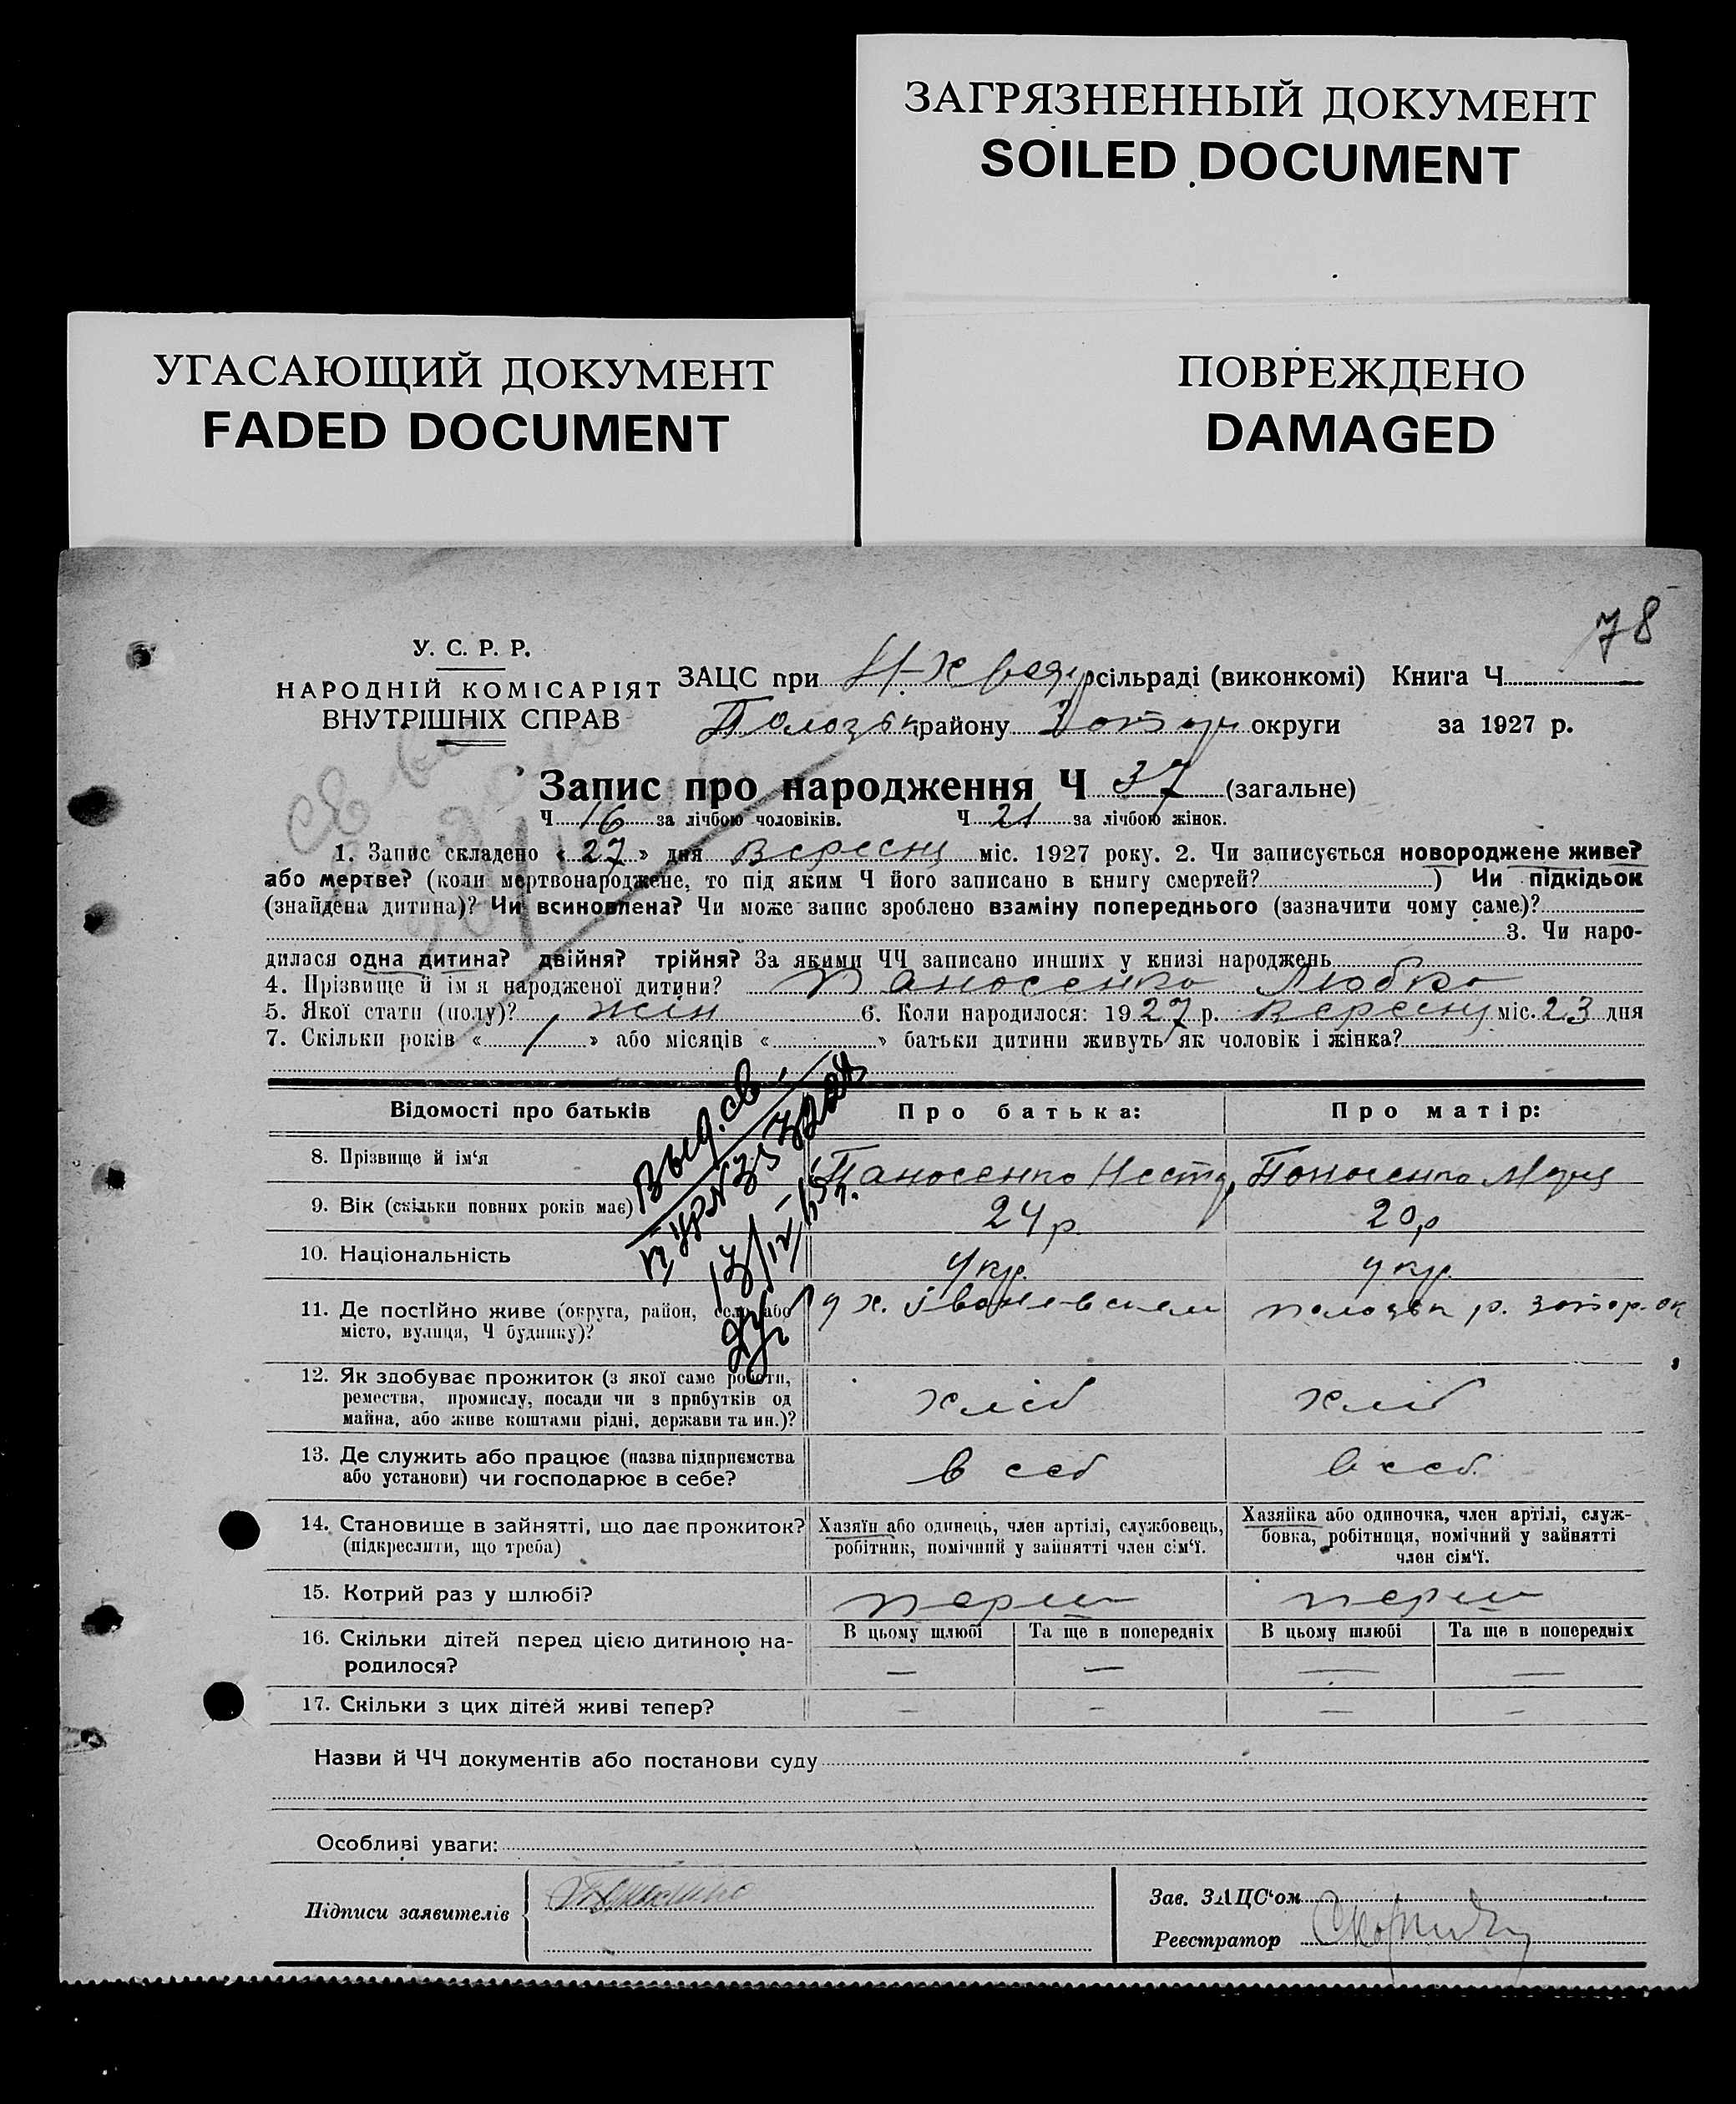 ЗАГРЯЗНЕННЫЙ ДОКУМЕНТ
SOILED DOCUMENT
УГАСАЮЩИЙ ДОКУМЕНТ
FADED DOCUMENT
ПОВРЕЖДЕНО
DAMAGED
78
У. С. Р. Р.
НАРОДНІЙ КОМІСАРІЯТ
ВНУТРІШНІХ СПРАВ
ЗАЦС при сільраді (виконкомі) Книга Ч
району округи за 1927 р.
Запис про народження Ч 37 (загальне)
Ч 16 за лічбою чоловіків. Ч 21 за лічбою жінок.
1. Запис складено « 27 » дня Вересня міс. 1927 року. 2. Чи записується новороджене живе?
або мертве? (коли мертвонароджене, то під яким Ч його записано в книгу смертей? ) Чи підкідьок
(знайдена дитина)? Чи всиновлена? Чи може запис зроблено взаміну попереднього (зазначити чому саме)?
3. Чи наро-
дилася одна дитина? двійня? трійня? За якими ЧЧ записано инших у книзі народжень
4. Прізвище й ім'я народженої дитини? Паносенко Любка
5. Якої стати (полу)? жін 6. Коли народилося: 1927 р. Вересня міс. 23 дня
7. Скільки років « 1 » або місяців « » батьки дитини живуть як чоловік і жінка?
Відомості про батьків
Про батька:
Про матір:
8. Прізвище й ім'я Паносенко Паносенко
9. Вік (скільки повних років має) 24 р. 20 р
10. Національність Укр. Укр.
11. Де постійно живе (округа, район, село або
місто, вулиця, Ч будинку)?
12. Як здобуває прожиток (з якої саме роботи,
ремества, промислу, посади чи з прибутків од
майна, або живе коштами рідні, держави та ин.)?
хліб хліб
13. Де служить або працює (назва підприємства
або установи) чи господарює в себе?
в себ в себ.
14. Становище в зайнятті, що дає прожиток?
(підкреслити, що треба)
Хазяїн або одинець, член артілі, службовець,
робітник, помічний у зайнятті член сім'ї.
Хазяйка або одиночка, член артілі, служ-
бовка, робітниця, помічний у зайнятті
член сім'ї.
15. Котрий раз у шлюбі? перш перш
16. Скільки дітей перед цією дитиною на-
родилося?
В цьому шлюбі Та ще в попередніх В цьому шлюбі Та ще в попередніх
— — — —
17. Скільки з цих дітей живі тепер? — — — —
Назви й ЧЧ документів або постанови суду
Особливі уваги:
Підписи заявителів
Зав. ЗАЦС'ом
Реєстратор